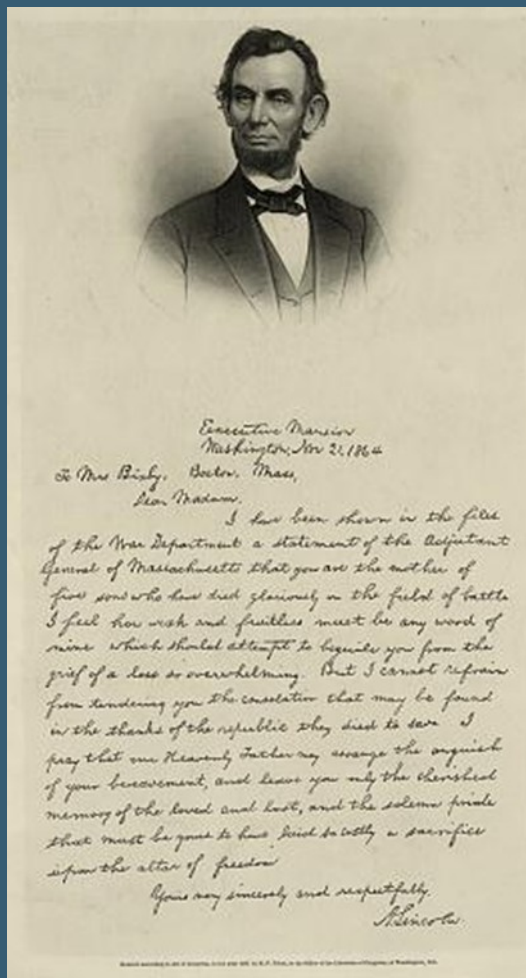 Executive Mansion
Washington, Nov 21, 1864
To Mrs Bixby, Boston, Mass,
Dear Madam,
I have been shown in the files
of the War Department a statement of the Adjutant
General of Massachusetts that you are the mother of
five sons who have died gloriously on the field of battle
I feel how weak and fruitless must be any word of
mine which should attempt to beguile you from the
grief of a loss so overwhelming. But I cannot refrain
from tendering you the consolation that may be found
in the thanks of the republic they died to save I
pray that our Heavenly Father may assuage the anguish
of your bereavement, and leave you only the cherished
memory of the loved and lost, and the solemn pride
that must be yours to have laid so costly a sacrifice
upon the altar of freedom
Yours very sincerely and respectfully,
A Lincoln